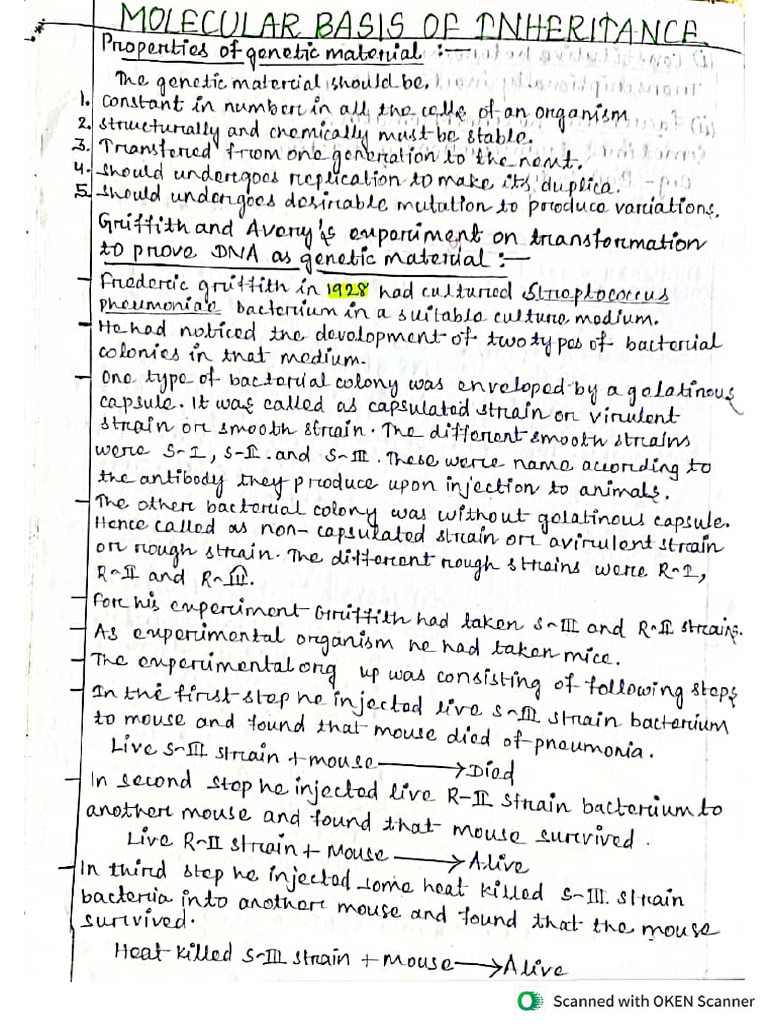 MOLECULAR BASIS OF INHERITANCE.
Properties of genetic material :—
The genetic material should be,
1. constant in number in all the cells of an organism
2. structurally and chemically must be stable.
3. Transfered from one generation to the next.
4. should undergoes replication to make its duplica.
5. should undergoes desirable mutation to produce variations.
Griffith and Avery's experiment on transformation
to prove DNA as genetic material :—
- Frederic griffith in 1928 had cultured Streptococcus
pneumoniae bacterium in a suitable culture medium.
- He had noticed the development of two types of bacterial
colonies in that medium.
- One type of bacterial colony was enveloped by a gelatinous
capsule. It was called as capsulated strain or virulent
strain or smooth strain. The different smooth strains
were S-I, S-II. and S-III. These were name according to
the antibody they produce upon injection to animals.
- The other bacterial colony was without gelatinous capsule.
Hence called as non-capsulated strain or avirulent strain
or rough strain. The different rough strains were R-I,
R-II and R-III.
- For his experiment Griffith had taken S-III and R-II strains.
- As experimental organism he had taken mice.
- The experimental up was consisting of following steps
- In the first step he injected live S-III strain bacterium
to mouse and found that mouse died of pneumonia.
Live S-III strain + mouse → Died
- In second step he injected live R-II strain bacterium to
another mouse and found that mouse survived.
Live R-II strain + Mouse → Alive
- In third step he injected some heat killed S-III. strain
bacteria into another mouse and found that the mouse
survived.
Heat killed S-III strain + mouse → Alive
Scanned with OKEN Scanner